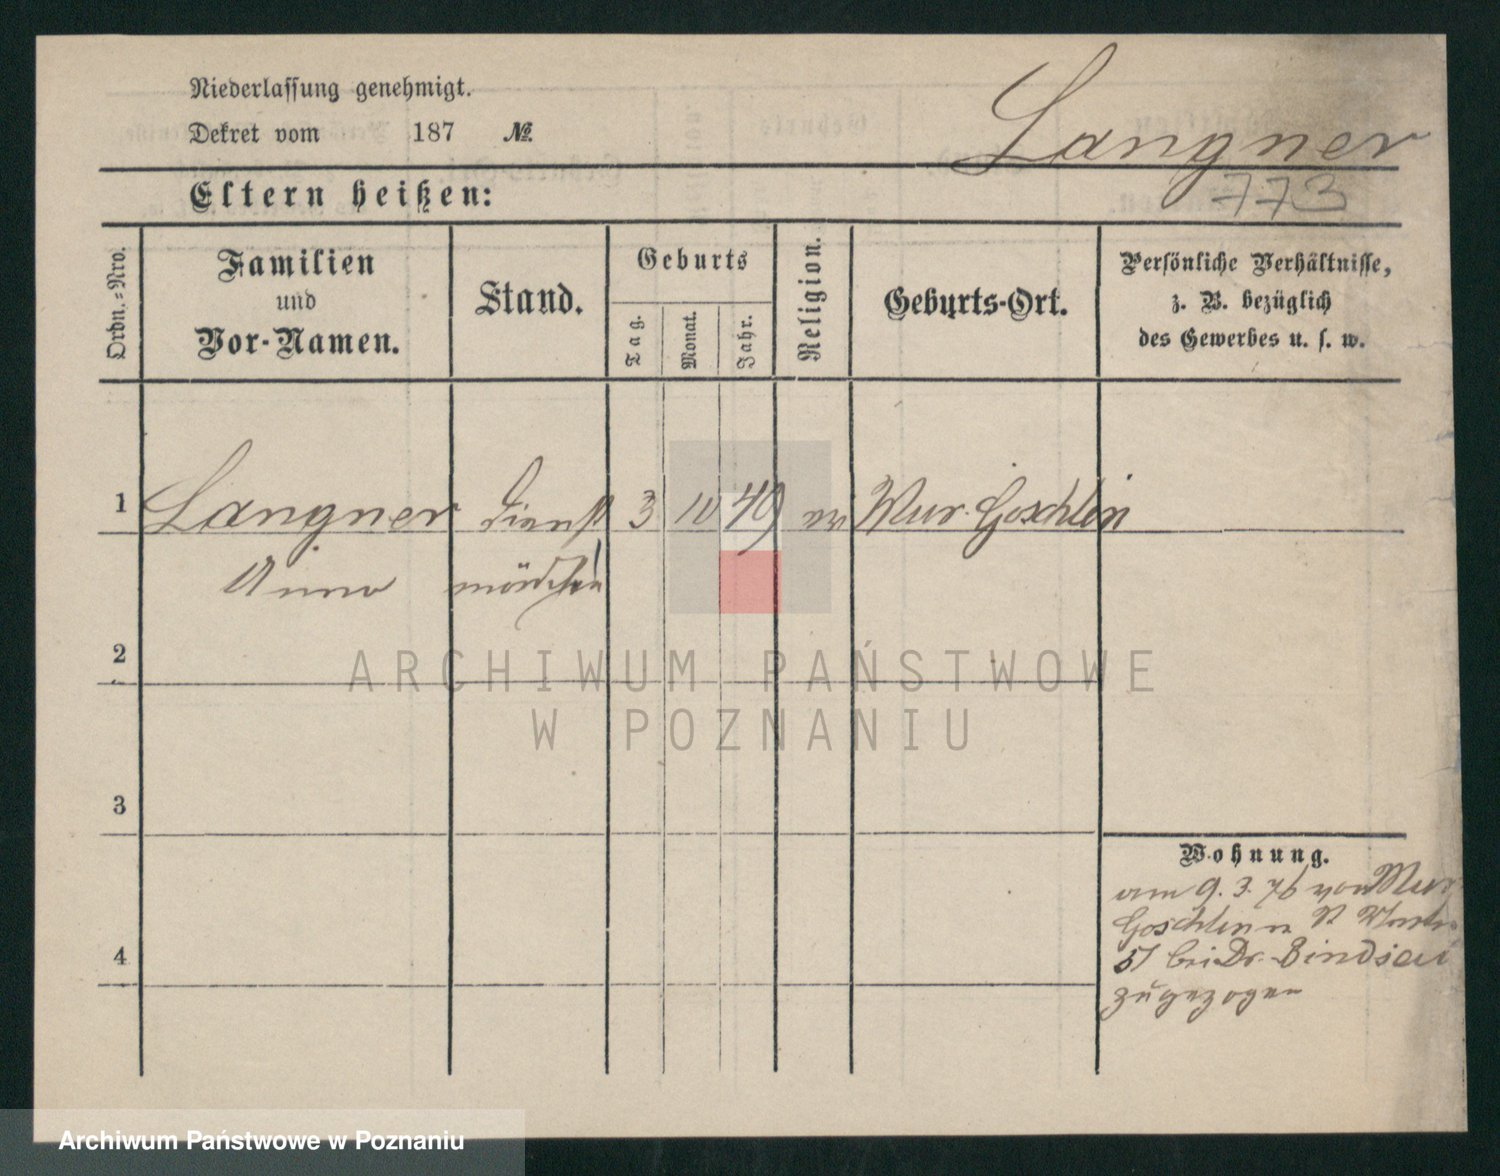 Niederlassung genehmigt.
Dekret vom 187 №
Langner
773
Eltern heißen:
Ordn.-Nro.
Familien
und
Vor-Namen.
Stand.
Geburts
Tag.
Monat.
Jahr.
Religion.
Geburts-Ort.
Persönliche Verhältnisse,
z. B. bezüglich
des Gewerbes u. s. w.
1 Langner Dienst 3 10 49 ev Mur. Goschlin
Anna mädchen
2
ARCHIWUM PAŃSTWOWE
W POZNANIU
3
Wohnung.
am 9. 3. 76 von Mur
Goschlin n
4
57 bei Dr. Bindseil
zugezogen
Archiwum Państwowe w Poznaniu